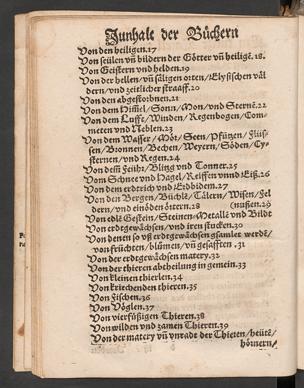 Junhalt der Büchern
Von den heiligen.17
Von seülen vñ bildern der Götter vñ heiligē.18.
Von Geistern vnd helden.19
Von der hellen/vñ säligen orten/Elysischen väl
dern/vnd zeitlicher straaff.20
Von den abgestorbnen.21
Von dem Him̃el/Sonn/Mon/vnd Sternē.22
Von dem Lufft/Winden/Regenbogen/Com-
meten vnd Neblen.23
Von dem Wasser/Mör/Seen/Pfützen/Flüs-
sen/Bronnen/Bechen/Weyern/Söden/Cy-
sternen/vnd Regen.24
Von dem Feühr/Blitzg vnd Tonner.25
Vom Schnee vnd Hagel/Reiffen vnnd Eiß.26
Von dem erdtrich vnd Erdbidem.27
Von den Bergen/Büchlē/Tälern/Wisen/Fel
dern/vnd einöden örtern.28
Von edlē Gestein/Steinen/Metallē vnd Bildt
Von erdtgewächsen/vnd iren stucken.30
Von denen so vß erdtgewächsen gsamlet werdē/
von früchten/blůmen/vñ gesafften.31
Von der erdtgewächsen matery.32
Von der thieren abtheilung in gemein.33
Von kleinen thierlen.34
Von kriechenden thieren.35
Von Fischen.36
Von Vöglen.37
Von vierfüßigen Thieren.38
Von wilden vnd zamen Thieren.39
Von der matery vñ vnrade der Thieren/heütē/
hörnern/